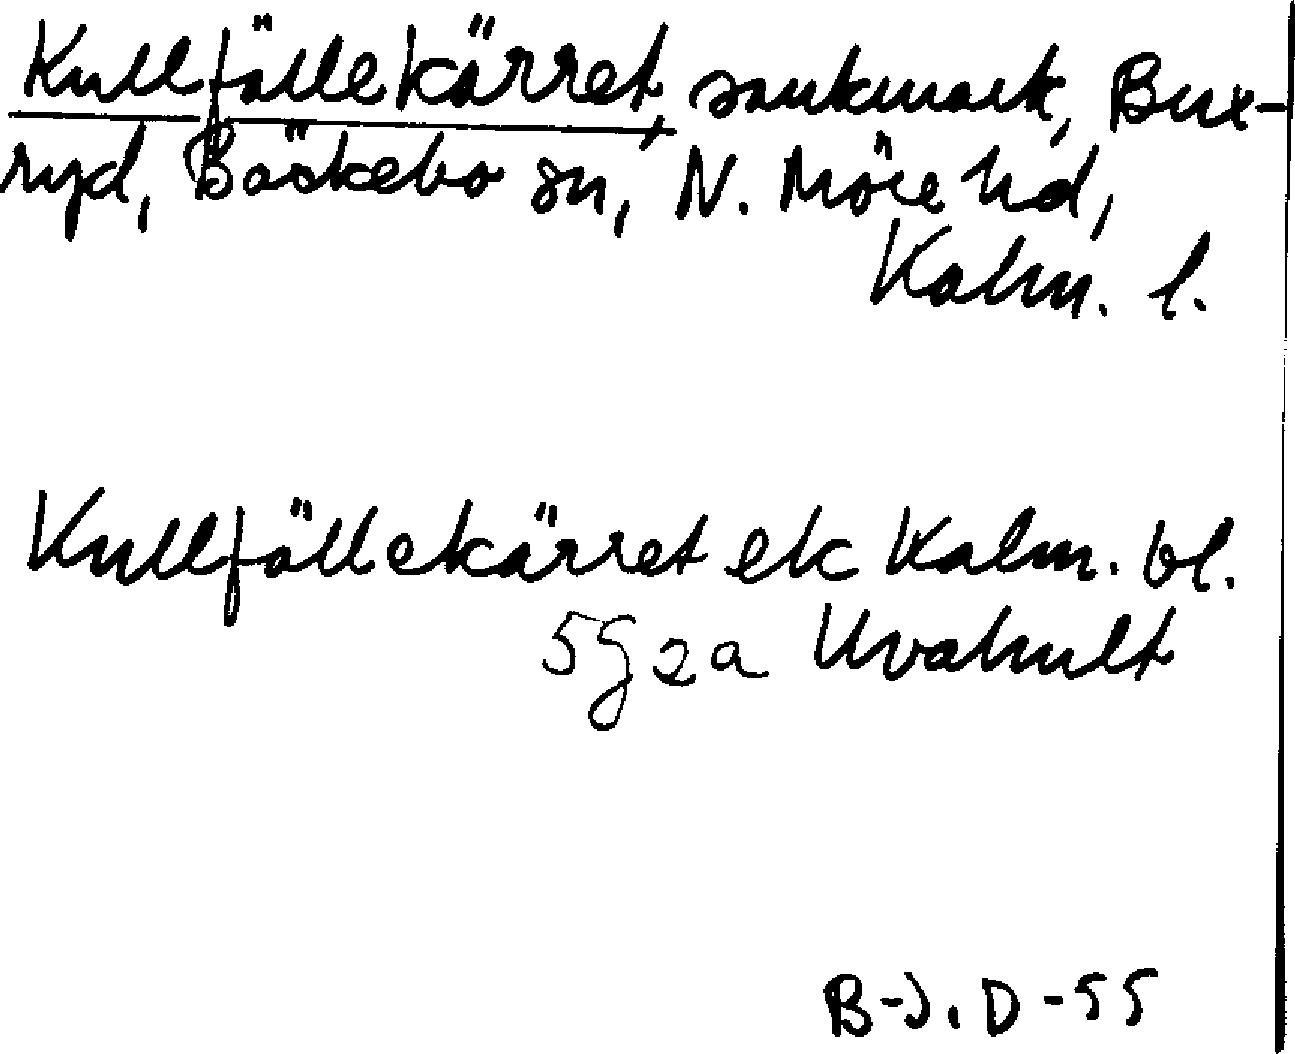 Kullfällekärret, sankmark, Bux-
ryd, Bäckebo sn, N. Möre hd,
Kalm. l.
Kullfällekärret ek Kalm. bl.
5g2a Uvahult
B-J. D-55